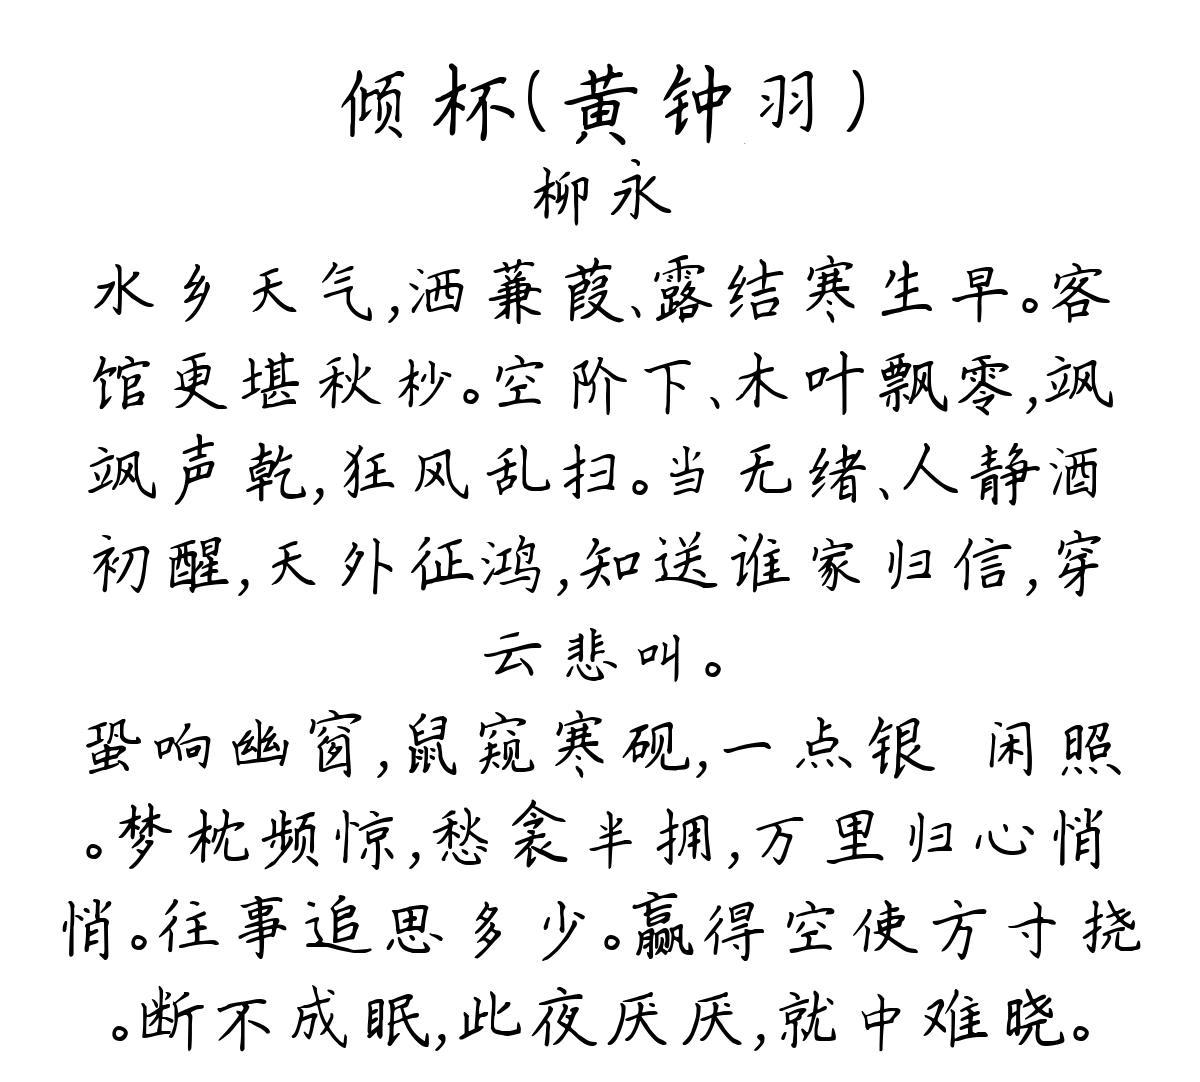 倾杯(黄钟羽)
柳永
水乡天气,洒蒹葭、露结寒生早。客
馆更堪秋杪。空阶下、木叶飘零,飒
飒声乾,狂风乱扫。当无绪、人静酒
初醒,天外征鸿,知送谁家归信,穿
云悲叫。
蛩响幽窗,鼠窥寒砚,一点银 闲照
。梦枕频惊,愁衾半拥,万里归心悄
悄。往事追思多少。赢得空使方寸挠
。断不成眠,此夜厌厌,就中难晓。